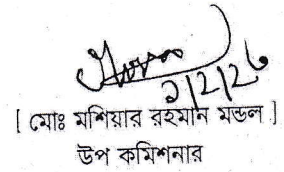 ৯/2/2৬
[ মোঃ মশিয়ার রহমান মন্ডল ]
উপ কমিশনার